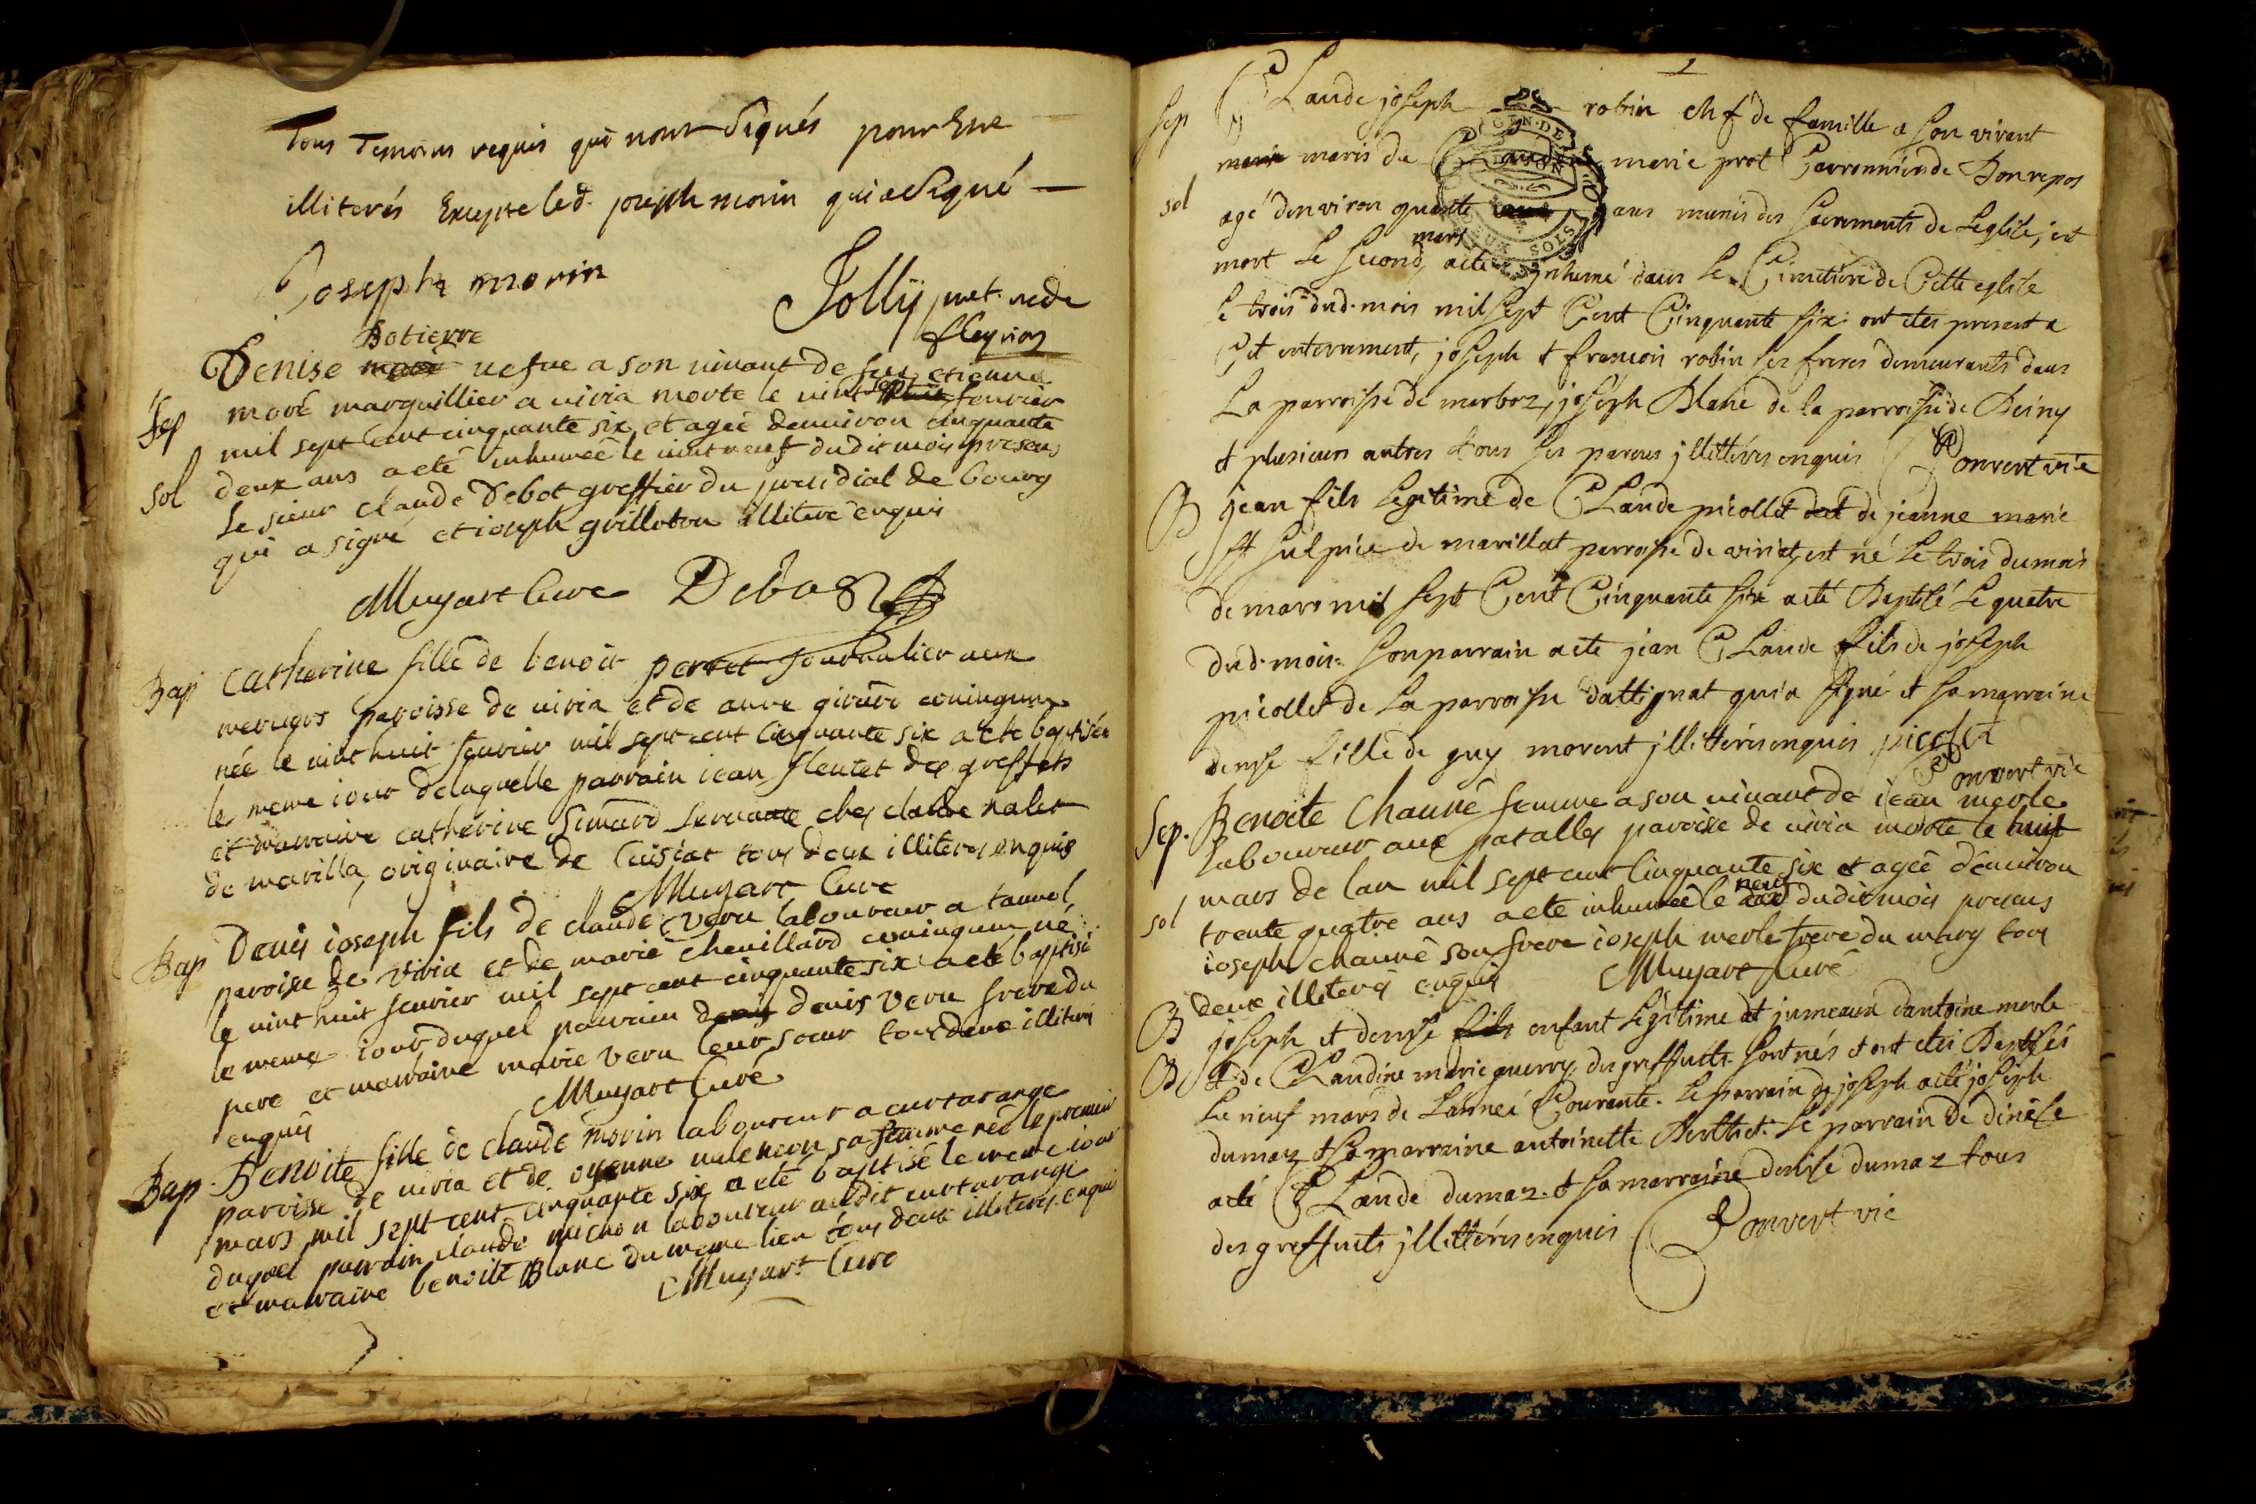 Tous Temoins requis qui nont Signés pour Etre
illiterés Excepte led. joseph morin qui a Signé
Joseph morin
Jollÿ pret. vic de
fleyriat
Botierre
Denise vefve a son vivant de feu etienne
Sep
moré marguillier a viria morte le vint sept fevrier
mil sept cent cinquante six et ageé denviron cinquante
sol
deux ans a eté inhumée le vint neuf dudit mois presens
le sieur claude Debot greffier du presidial de bourg
qui a signé et ioseph grilleton illiteré enquis
Muyart Curé Debost
Bap
Catherine fille de benoit perret journalier aux
paroisse de viria et de anne girard coniugum
née le vint huit fevrier mil sept cent cinquante six a ete baptisée
le meme iour de laquelle parrain iean fleutet des greffets
et marraine catherine Simard servante ches claude nalet
de marilla, originaire de Cuisiat tous deux illiteres enquis
Muyart Curé
Bap
Denis ioseph fils de claude veru laboureur a tanvol
paroisse de viria et de marie chevillard coniugum né
le vint huit fevrier mil sept cent cinquante six a eté baptisé
le meme iour duquel parrain denis veru frere du
pere et marraine marie veru leur soeur tous deux illiteres
enquis
Muyart Curé
Bap
Benoite fille de claude morin laboureur a curtarange
paroisse de viria et de oyenne valencon sa femme née le premier
mars mil sept cent cinquante six a eté baptisé le meme iour
duquel parrain claude michon laboureur audit curtarange
et marraine benoite Blanc du meme lieu tous deux illiteres enquis
Muyart Curé
1
Sep
CLaude joseph robin chef de famille a son vivant
maris de Claudine marie prot de Bonrepos
sol
agé denviron quante ans munis des sacrements de Leglise, est
mars
mort le second a eté inhumé dans Le Cimetiere de Cette eglise
le trois dud. mois mil sept Cent Cinquante six ont etes present a
Cet enterrement, joseph et francois robin ses freres demeurants dans
La parroisse de marboz, joseph Blanc de la parroisse de Beiny
et plusieurs autres tous ses parens jllittéres enquis Convert vic
B
jean fils legitime de CLaude picollet et de jeanne marie
st sulpice de marillat parroisse de viriat, est né le trois du mois
de mars mil sept Cent Cinquante six a eté Baptisé Le quatre
dud. mois. son parrain a eté jean CLaude fils de joseph
picollet de La parroisse dattignat qui a signé et sa marraine
denise fille de guy morent jllittérés enquis picolet
Convert vic
Sep.
Benoite Chauné femme a son vivant de iean merle
laboureur aux patalles paroisse de viria morte le huit
mars de lan mil sept cent cinquante six et ageé denviron
neuf
sol
trente quatre ans a eté inhumeé le dudit mois presens
ioseph chauné son frere ioseph merle frere du mary tous
deux illiterés enquis
Muyart Curé
B
joseph et denise enfant Légitime et jumeaux dantoine merle
B
et de CLaudine marie guerry des greffiets sont nés et ont etés Baptisés
Le neuf mars de Lannéé Courante. Le parrain de joseph a eté joseph
dumaz et sa marraine antoinette Berthet. Le parrain de denise
a eté CLaude dumaz. et sa marraine denise dumaz tous
des greffiets jllittérés enquis Convert vic